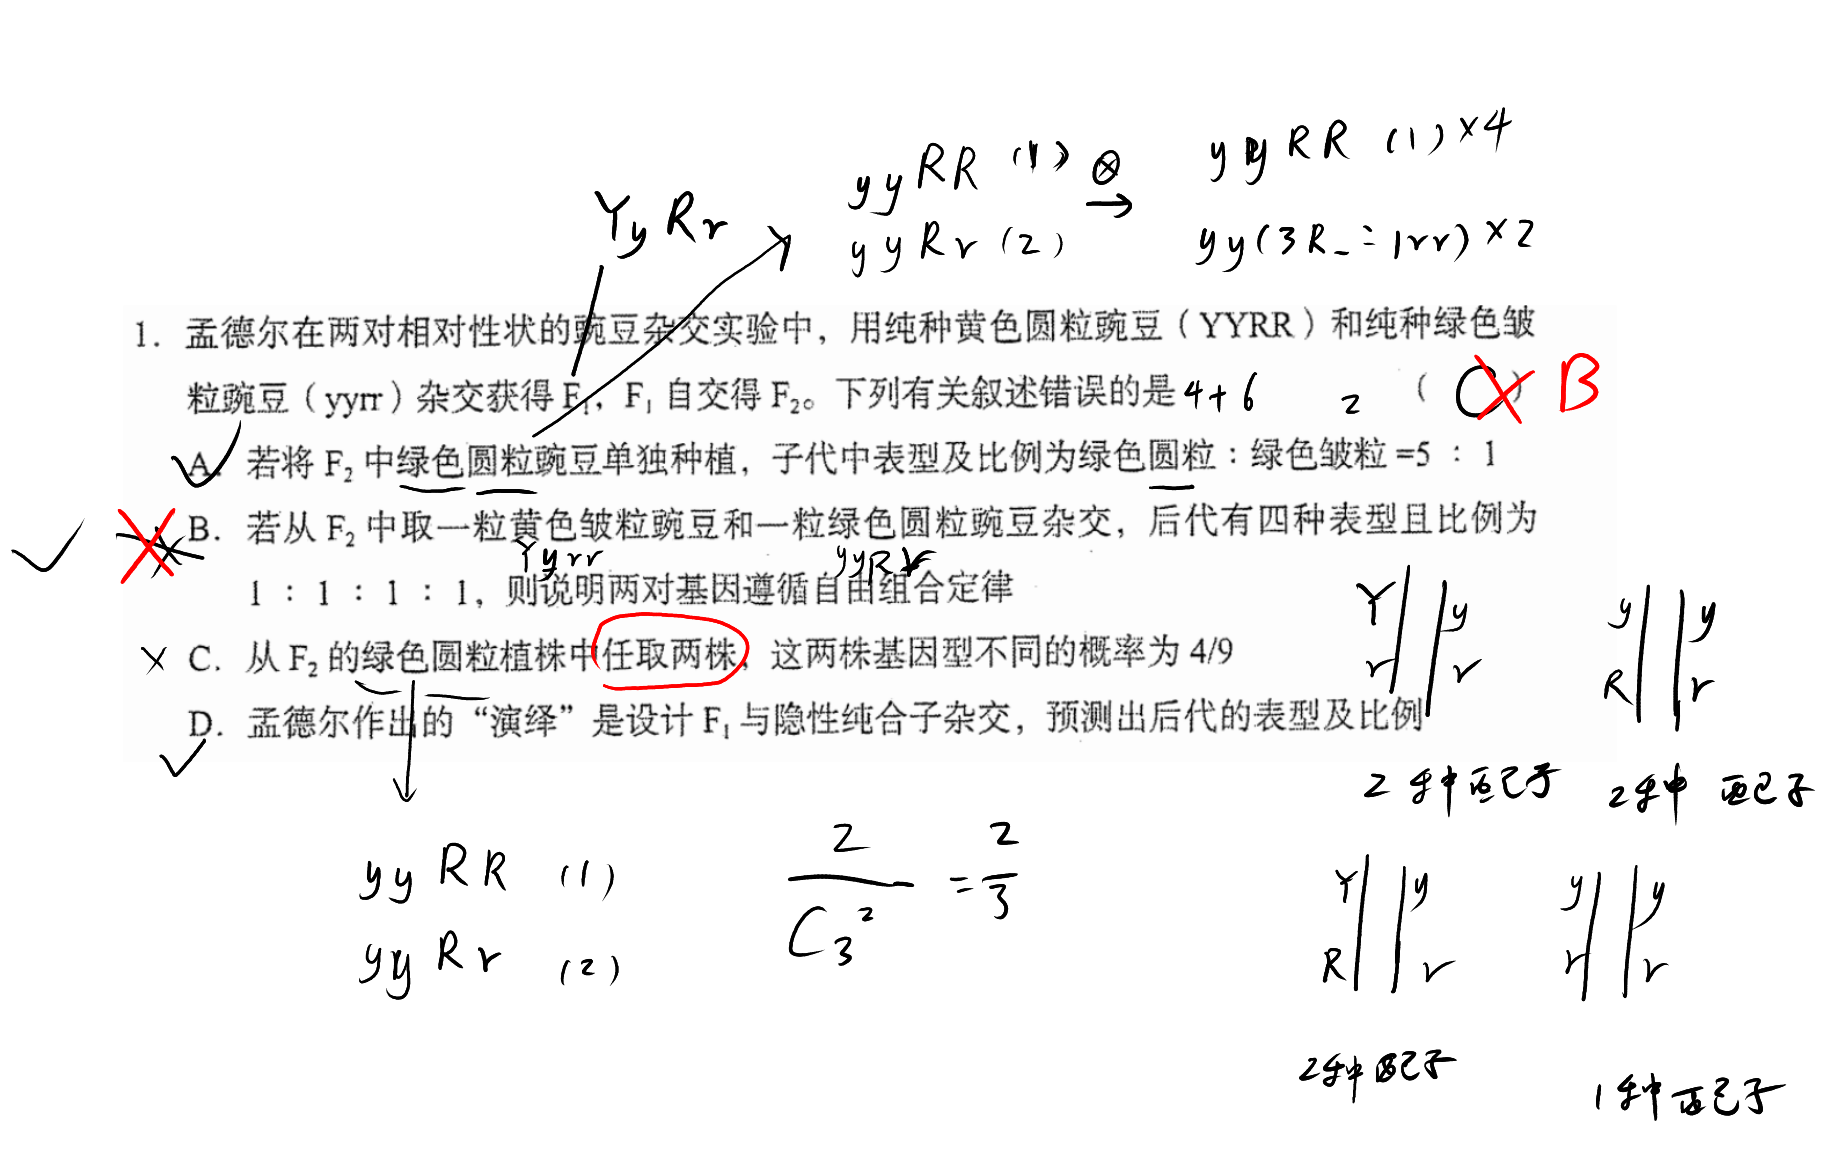 yyRR (1) ⊗ yyRR (1)×4
YyRr
yyRr (2) → yy(3R_:1rr)×2
1. 孟德尔在两对相对性状的豌豆杂交实验中，用纯种黄色圆粒豌豆（YYRR）和纯种绿色皱
粒豌豆（yyrr）杂交获得 F₁，F₁ 自交得 F₂。下列有关叙述错误的是 4+6 2 （ C ） B
A. 若将 F₂ 中绿色圆粒豌豆单独种植，子代中表型及比例为绿色圆粒：绿色皱粒=5：1
B. 若从 F₂ 中取一粒黄色皱粒豌豆和一粒绿色圆粒豌豆杂交，后代有四种表型且比例为
Yyrr yyRr
1：1：1：1，则说明两对基因遵循自由组合定律
Y y y y
C. 从 F₂ 的绿色圆粒植株中任取两株，这两株基因型不同的概率为 4/9
r r R r
D. 孟德尔作出的“演绎”是设计 F₁ 与隐性纯合子杂交，预测出后代的表型及比例
2种配子 2种配子
yyRR (1)
yyRr (2)
2/C₃² = 2/3
Y y y y
R r r r
2种配子
1种配子